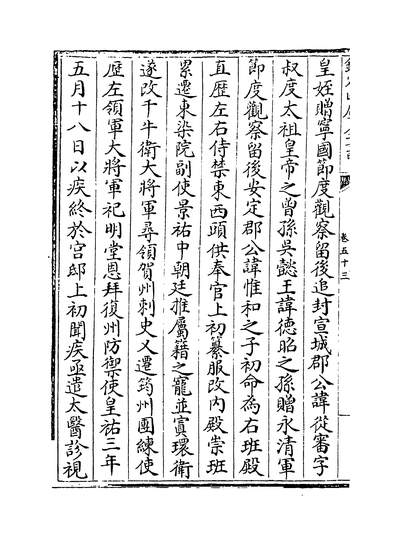 皇姪贈寧國節度觀察留後追封宣城郡公諱從審字
叔度太祖皇帝之曾孫吳懿王諱德昭之孫贈永清軍
節度觀察留後安定郡公諱惟和之子初命為右班殿
直歷左右侍禁東西頭供奉官上初纂服改内殿崇班
累遷東染院副使景祐中朝廷推屬籍之寵並寘環衛
遂改千牛衛大將軍尋領賀州刺史又遷筠州團練使
歴左領軍大將軍祀明堂恩拜復州防禦使皇祐三年
五月十八日以疾終於宫邸上初聞疾亟遣太醫診視
卷五十三